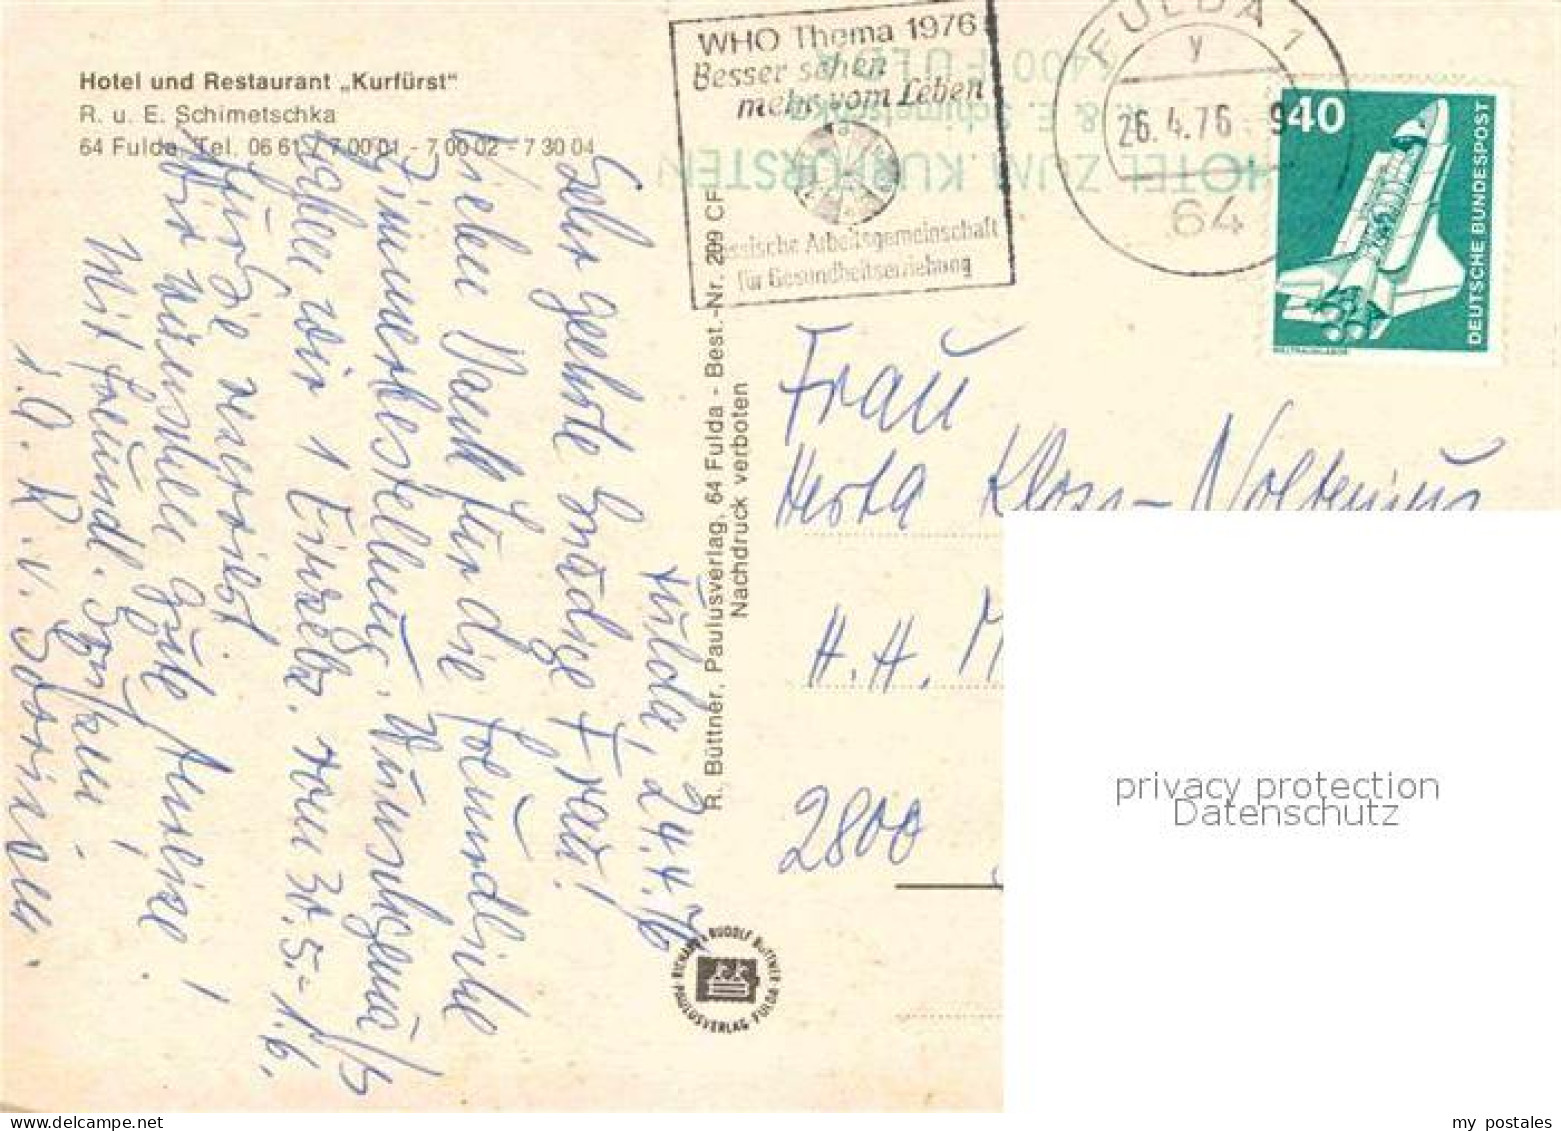 Hotel und Restaurant „Kurfürst“
R. u. E. Schimetschka
64 Fulda, Tel. 06 61 / 7 00 01 - 7 00 02 - 7 30 04
WHO Thema 1976
Besser sehen
mehr vom Leben
Hessische Arbeitsgemeinschaft
für Gesundheitserziehung
FULDA 1
y
26.4.76 - 9
64
HOTEL ZUM KURFÜRSTEN
R. & E. Schimetschka
6400 FULDA
40
DEUTSCHE BUNDESPOST
WELTRAUMLABOR
R. Büttner, Paulusverlag, 64 Fulda - Best.-Nr. 299 CF
Nachdruck verboten
RICHARD & RUDOLF BÜTTNER · PAULUSVERLAG · FULDA
Fulda, 24.4.76
Sehr geehrte gnädige Frau!
Vielen Dank für die freundliche
Zimmerbestellung. Wunschgemäß
haben wir 1 Einzelz. vom 30.5.-1.6.
für Sie reserviert.
Wir wünschen gute Anreise!
Mit freundl. Grüßen!
i.A. R. v.
Frau
Herta Kloss-Noltenius
H.H. M
2800
privacy protection
Datenschutz
my postales